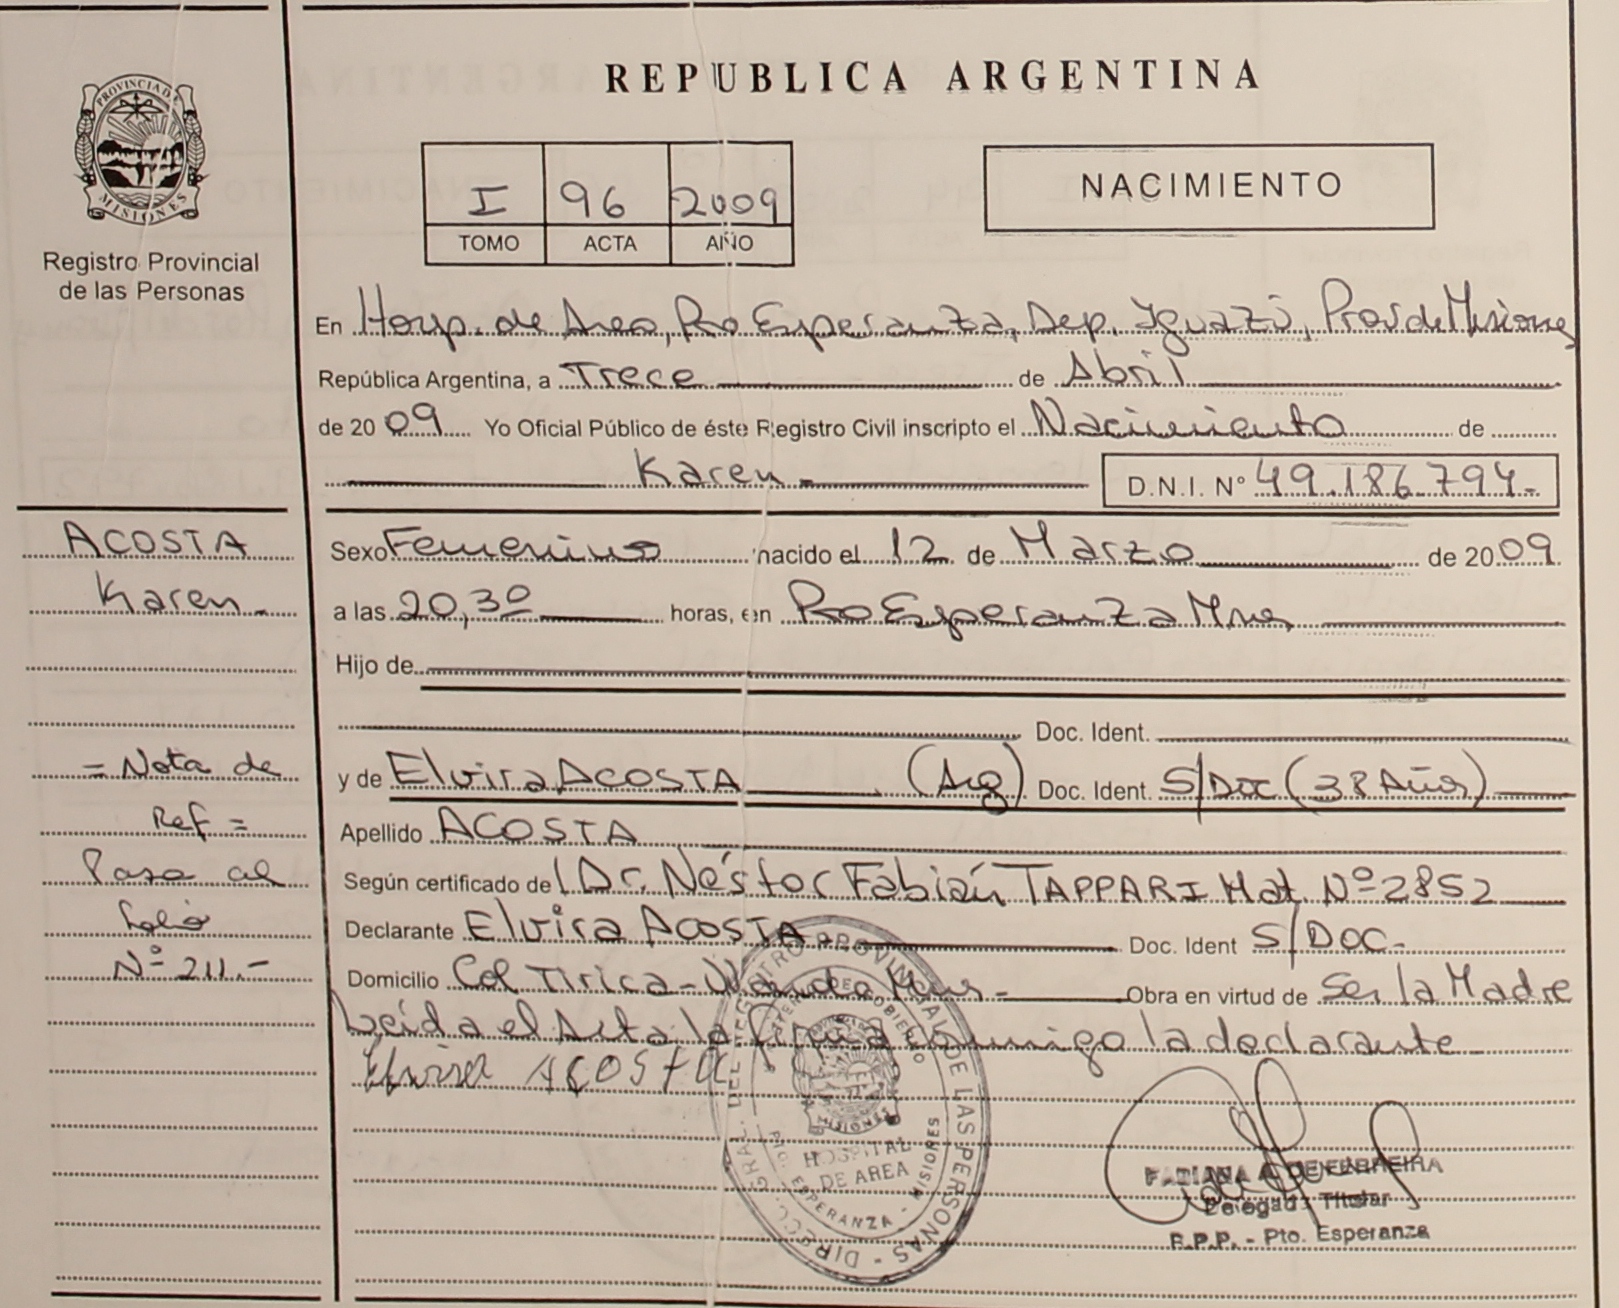 PROVINCIA DE
MISIONES
Registro Provincial
de las Personas
REPUBLICA ARGENTINA
I 96 2009
TOMO ACTA AÑO
NACIMIENTO
En Hosp. de Area, Pto Esperanza, Dep. Iguazú, Prov de Misiones
República Argentina, a Trece de Abril
de 2009 Yo Oficial Público de éste Registro Civil inscripto el Nacimiento de
Karen D.N.I. Nº 49.186.794.-
ACOSTA
Karen.-
= Nota de
Ref =
Pasa al
folio
Nº 211.-
Sexo Femenino nacido el 12 de Marzo de 2009
a las 20,30 horas, en Pto Esperanza Mnes
Hijo de
Doc. Ident.
y de Elvira ACOSTA (Arg) Doc. Ident. S/Doc (38 Años)
Apellido ACOSTA
Según certificado del Dr. Néstor Fabián TAPPARI Mat. Nº 2852
Declarante Elvira ACOSTA Doc. Ident S/DOC.-
Domicilio Col Tirica - Wanda Mnes - Obra en virtud de Ser la Madre
Leída el Acta la firma conmigo la declarante
Elvira ACOSTA
DIRECC. GRAL. DEL REGISTRO PROVINCIAL DE LAS PERSONAS
MISIONES
HOSPITAL
DE AREA
PTO. ESPERANZA - MISIONES
FABIANA DE FERREIRA
Delegada Titular
R.P.P. - Pto. Esperanza